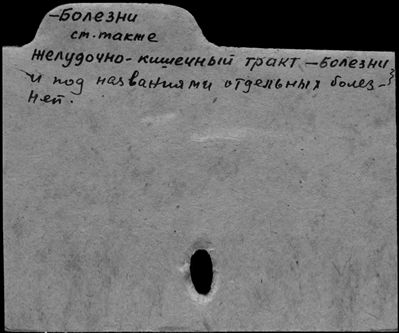 —Болезни
см. также
желудочно-кишечный тракт —Болезни
и под названиями отдельных болез-
ней.